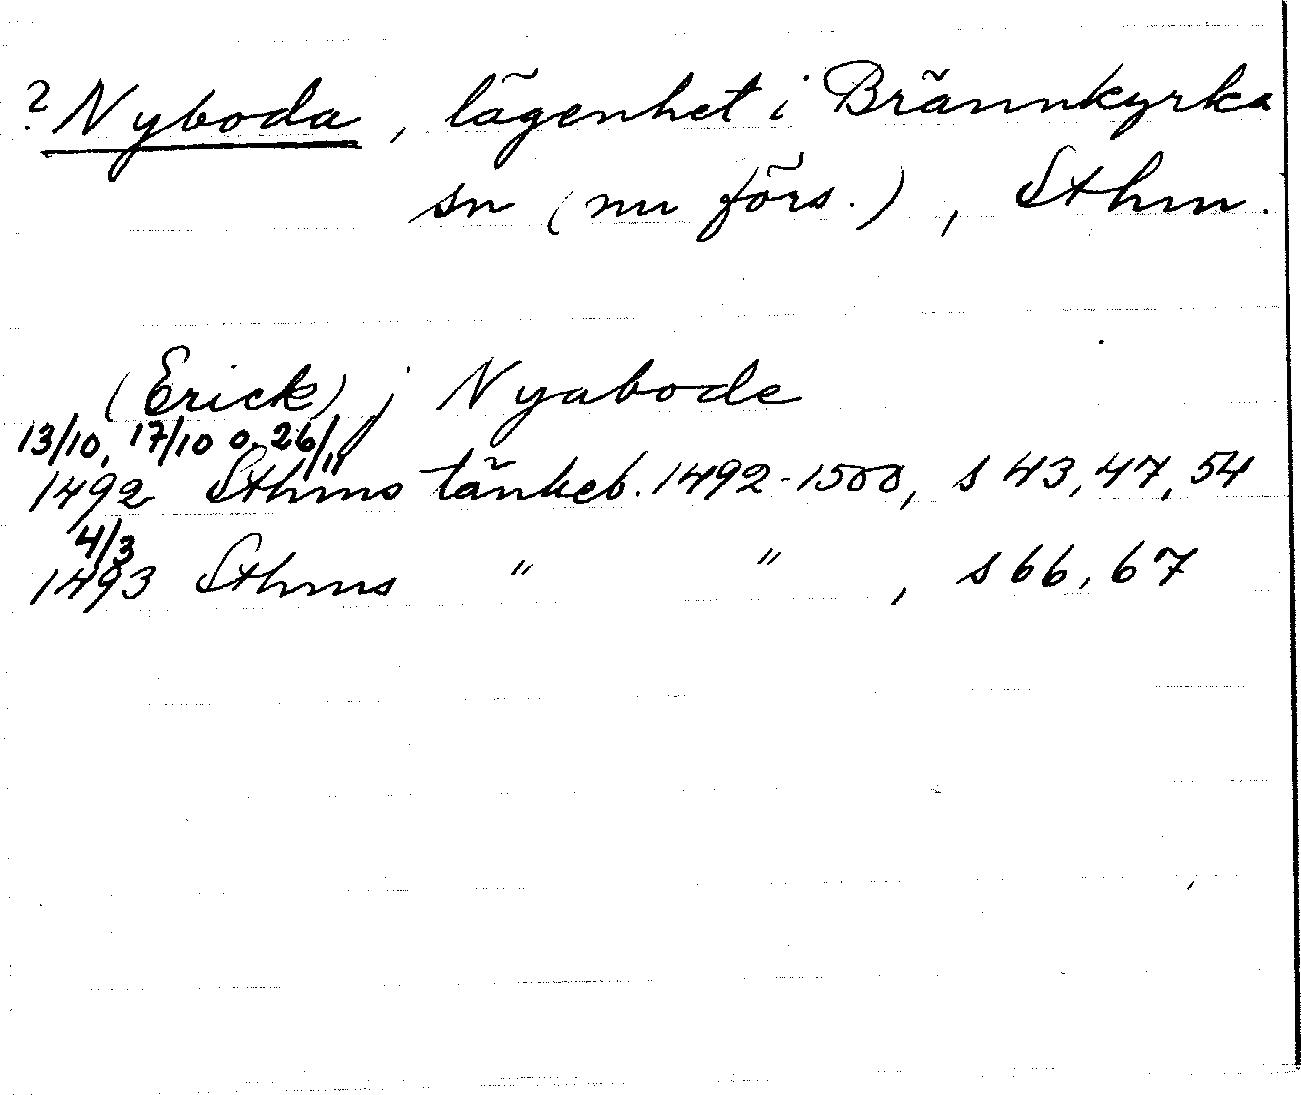 ? Nyboda, lägenhet i Brännkyrka
sn (nu förs.), Sthm.
(Erick) j Nyabode
13/10, 17/10 o. 26/11
1492 Sthms tänkeb. 1492-1500, s 43, 47, 54
4/3
1493 Sthms " " , s 66, 67